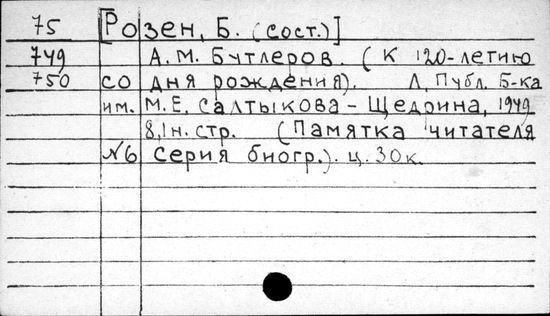 75 [Розен, Б. (сост.)]
749 А. М. Бутлеров. (К 120-летию
750 со дня рождения). Л, Публ. Б-ка
им. М. Е. Салтыкова-Щедрина, 1949
8,1н. стр. (Памятка читателя
№6 Серия биогр.). ц. 30к.